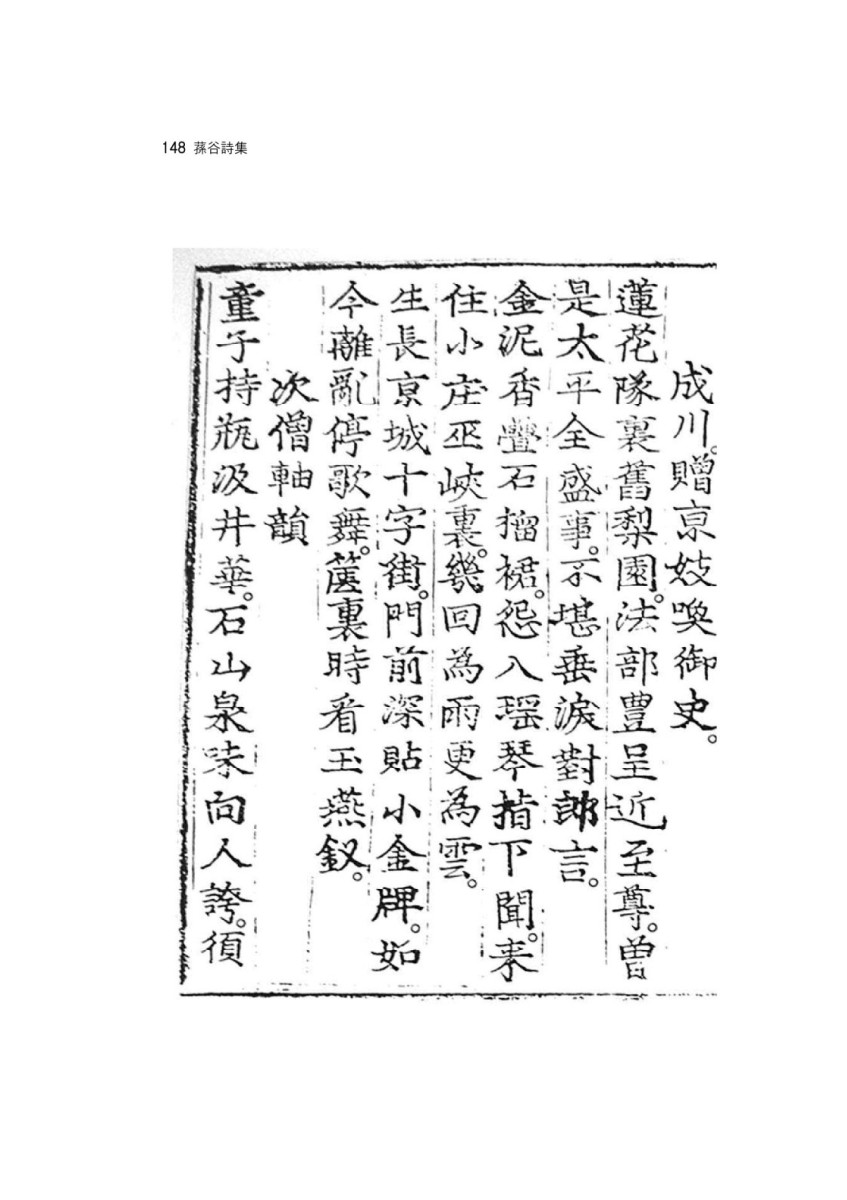 148 蓀谷詩集
成川。贈京妓喚御史。
蓮花隊裏舊梨園。法部豊呈近至尊。曽
是太平全盛事。不堪垂淚對郎言。
金泥香疊石榴裙。怨入瑶琴指下聞。来
住小庄巫峽裏。幾回為雨更為雲。
生長京城十字街。門前深貼小金牌。如
今離亂停歌舞。篋裏時看玉燕釵。
次僧軸韻
童子持瓶汲井華。石山泉味向人誇。須